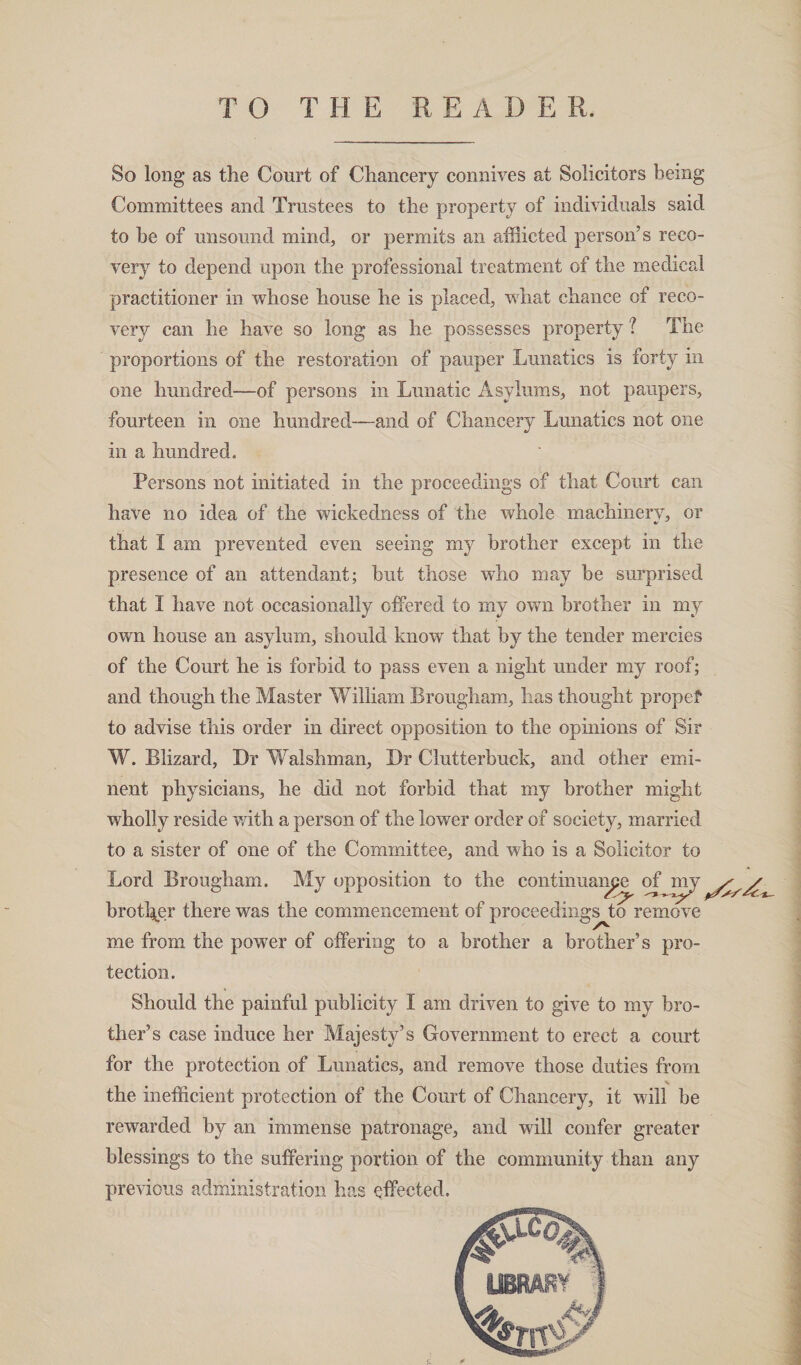 TO THE READER.
So long as the Court of Chancery connives at Solicitors being
Committees and Trustees to the property of individuals said
to be of unsound mind, or permits an afflicted person's reco-
very to depend upon the professional treatment of the medical
practitioner in whose house he is placed, what chance of reco-
very can he have so long as he possesses property? The
proportions of the restoration of pauper Lunatics is forty in
one hundred—of persons in Lunatic Asylums, not paupers,
fourteen in one hundred—and of Chancery Lunatics not one
in a hundred.
Persons not initiated in the proceedings of that Court can
have no idea of the wickedness of the whole machinery, or
that I am prevented even seeing my brother except in the
presence of an attendant; but those who may be surprised
that I have not occasionally offered to my own brother in my
own house an asylum, should know that by the tender mercies
of the Court he is forbid to pass even a night under my roof;
and though the Master William Brougham, has thought propef
to advise this order in direct opposition to the opinions of Sir
W. Blizard, Dr Walshman, Dr Clutterbuck, and other emi-
nent physicians, he did not forbid that my brother might
wholly reside with a person of the lower order of society, married
to a sister of one of the Committee, and who is a Solicitor to
Lord Brougham. My opposition to the continuance of my
brother there was the commencement of proceedings to remove
me from the power of offering to a brother a brother's pro-
tection.
Should the painful publicity I am driven to give to my bro-
ther's case induce her Majesty's Government to erect a court
for the protection of Lunatics, and remove those duties from
the inefficient protection of the Court of Chancery, it will be
rewarded by an immense patronage, and will confer greater
blessings to the suffering portion of the community than any
previous administration has effected.
WELLCOME
LIBRARY
INSTITUTE